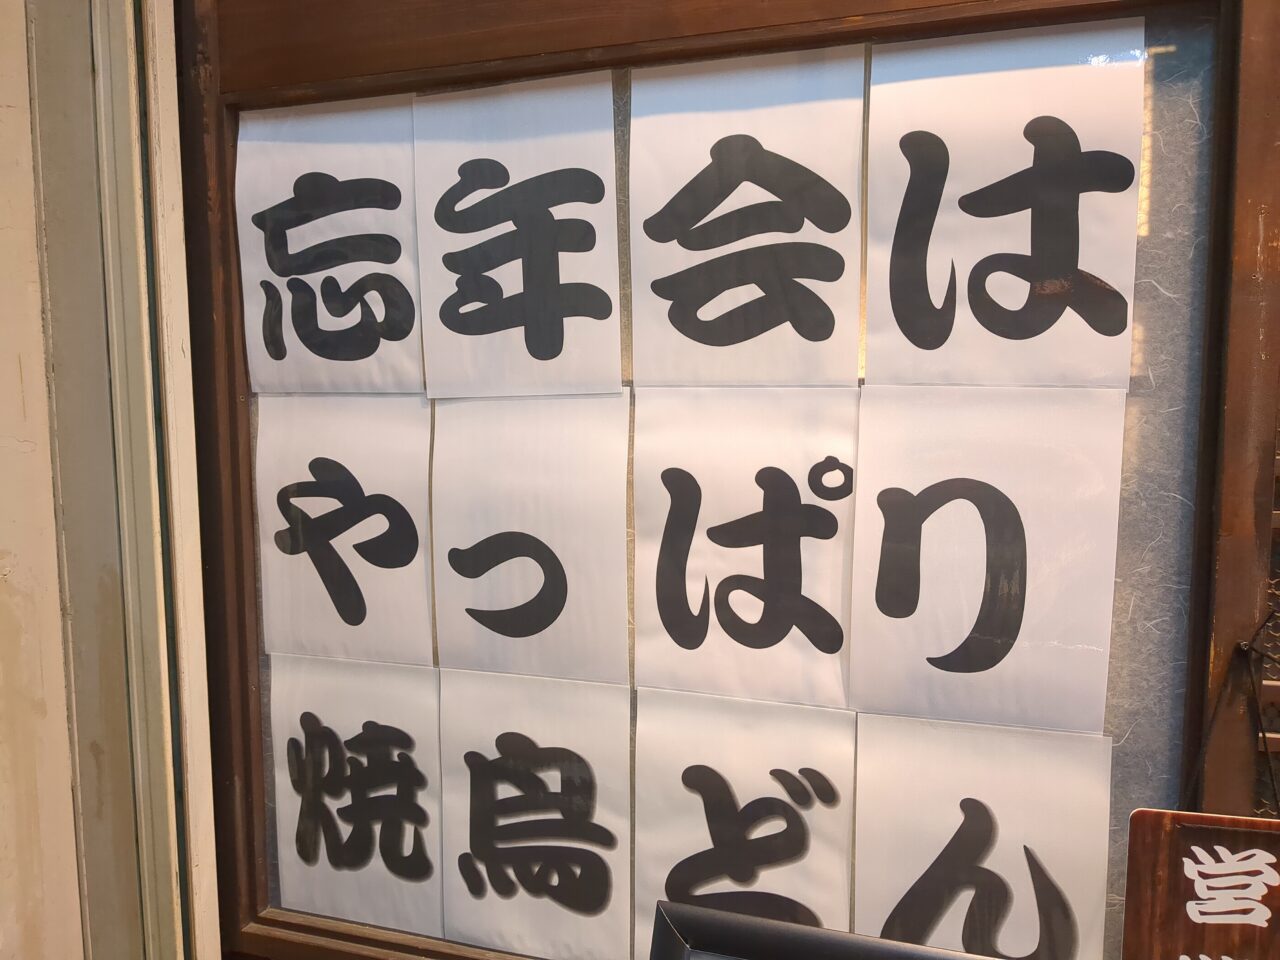 忘年会は
やっぱり
焼鳥どん
営